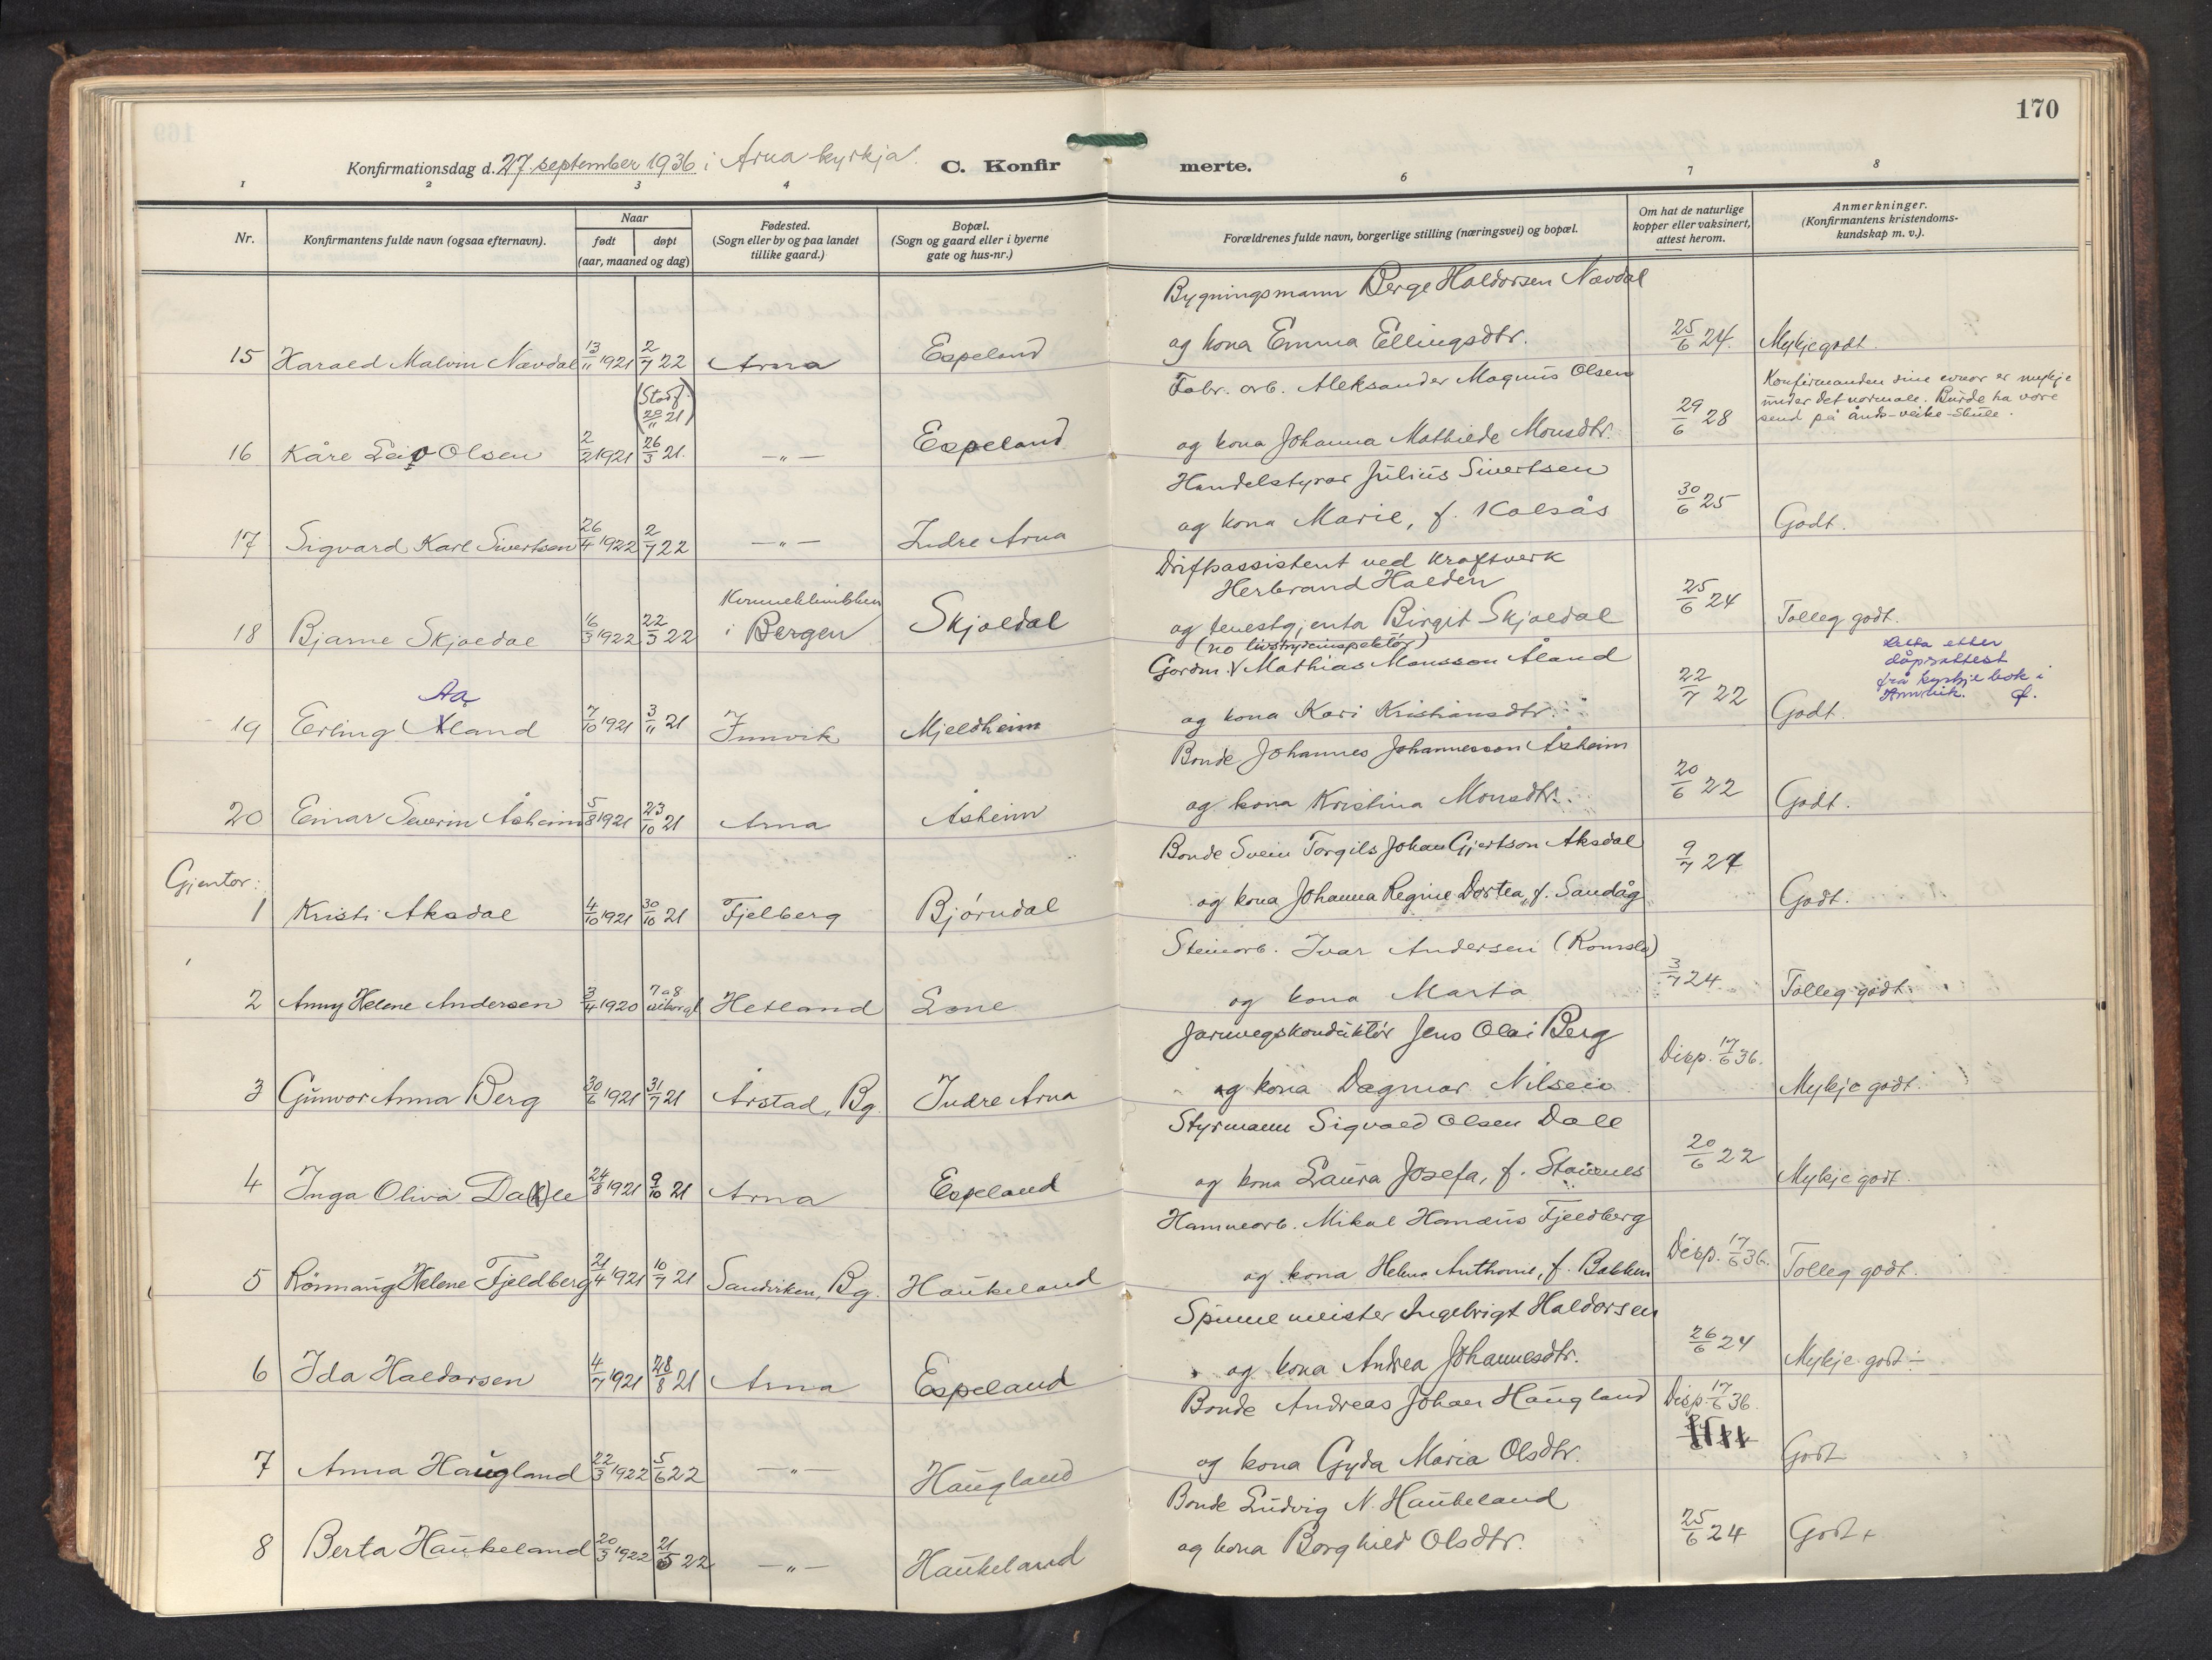 170
Konfirmationsdag d. 27. september 1936 i Arna kyrkja.
C. Konfirmerte.
1 2 3 4 6 7 8
Nr.
Konfirmantens fulde navn (ogsaa efternavn).
Naar
født døpt
(aar, maaned og dag)
Fødested.
(Sogn eller by og paa landet
tillike gaard.)
Bopæl.
(Sogn og gaard eller i byerne
gate og hus-nr.)
Forældrenes fulde navn, borgerlige stilling (næringsvei) og bopæl.
Om hat de naturlige
kopper eller vaksinert,
attest herom.
Anmerkninger.
(Konfirmantens kristendoms-
kundskap m. v.).
Bygningsmann Berge Haldorsen Nævdal
15 Harald Malvin Nævdal 13/11 1921 2/7 22 Arna Espeland og kona Emma Ellingsdtr. 25/6 24. Mykje godt.
(Stadf. 20/11 21)
Fabr. arb. Aleksander Magnus Olsen
Konfirmanden sine evner er mykje
under det normale. Burde ha vore
send på ånds-veike-skule.
16 Kåre Leiv Olsen 2/2 1921 26/3 21. —„— Espeland og kona Johanna Mathilde Monsdtr. 29/6 28
Handelstyrar Julius Sivertsen
17 Sigvard Karl Sivertsen 26/4 1922 2/7 22 —„— Indre Arna og kona Marie, f. Kalsås 30/6 25 Godt.
Driftsassistent ved kraftverk
Herbrand Halden
Kvinneklinikken
18 Bjarne Skjældal 16/3 1922 22/3 22 i Bergen Skjældal og tenestgjenta Birgit Skjældal 25/6 24 Tolleg godt.
(no livstrydeinspektør)
Gardm. V Mathias Monsson Åland
Retta etter
dåpsattest
frå kyrkjebok i
Innvik.
Aa
19 Erling Åland 7/10 1921 3/11 21 Innvik Mjeldheim og kona Kari Kristiansdtr. 22/7 22 Godt.
Bonde Johannes Johannesson Åsheim
20 Einar Severin Åsheim 5/8 1921 23/10 21 Arna Åsheim og kona Kristina Monsdtr. 20/6 22 Godt.
Gjentor:
Bonde Svein Torgils Johan Gjertson Aksdal
1 Kristi Aksdal 4/10 1921 30/10 21 Fjelberg Bjørndal og kona Johanna Regine Dortea, f. Sandåg 9/7 27 Godt.
Steinarb. Ivar Andersen (Romslo)
2 Anny Helene Andersen 3/4 1920 Hetland Lone og kona Marta 3/7 24 Tolleg godt.
Jarnvegskonduktør Jens Olai Berg
3 Gunvor Anna Berg 30/6 1921 31/7 21 Årstad, Bg. Indre Arna og kona Dagmar Nilsen Disp. 17/6 36. Mykje godt.
Styrmann Sigvald Olsen Dale
4 Inga Oliva Da(h)le 24/8 1921 9/10 21 Arna Espeland og kona Laura Josefa, f. Stavenes 20/6 22 Mykje godt.
Hamnearb. Mikal Homæus Fjeldberg
5 Rönnaug Helene Fjeldberg 21/4 1921 10/7 21 Sandviken, Bg. Haukeland og kona Helena Anthonie, f. Bakken Disp. 17/6 36. Tolleg godt.
Spinnemeister Ingebrigt Haldorsen
6 Ida Haldorsen 4/7 1921 28/8 21 Arna Espeland og kona Andrea Johannesdtr. 26/6 24 Mykje godt ÷
Bonde Andreas Johan Haugland Disp. 17/6 36.
7 Anna Haugland 22/3 1922 5/6 22 —„— Haugland og kona Gyda Maria Olsdtr. Godt
Bonde Ludvig N. Haukeland
8 Berta Haukeland 20/3 1922 21/5 22 —„— Haukeland og kona Borghild Olsdtr. 25/6 24 Godt +